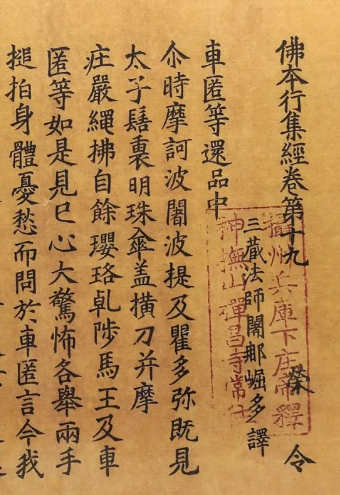 佛本行集經卷第十九 令
三藏法師闍那崛多譯
車匿等還品中
尒時摩訶波闍波提及瞿多弥既見
太子髻裏明珠傘盖横刀并摩
庄嚴繩拂自餘瓔珞乹陟馬王及車
匿等如是見已心大驚怖各舉兩手
搥拍身體憂愁而問於車匿言今我
攝州兵庫下庄帝釋
神撫山禪昌寺常住